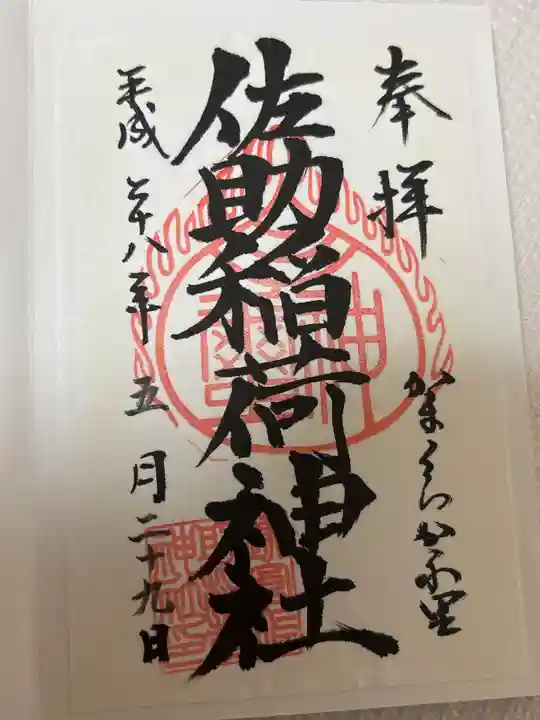 奉拝
かまくら
佐助稲荷神社
平成二十八年五月二十九日